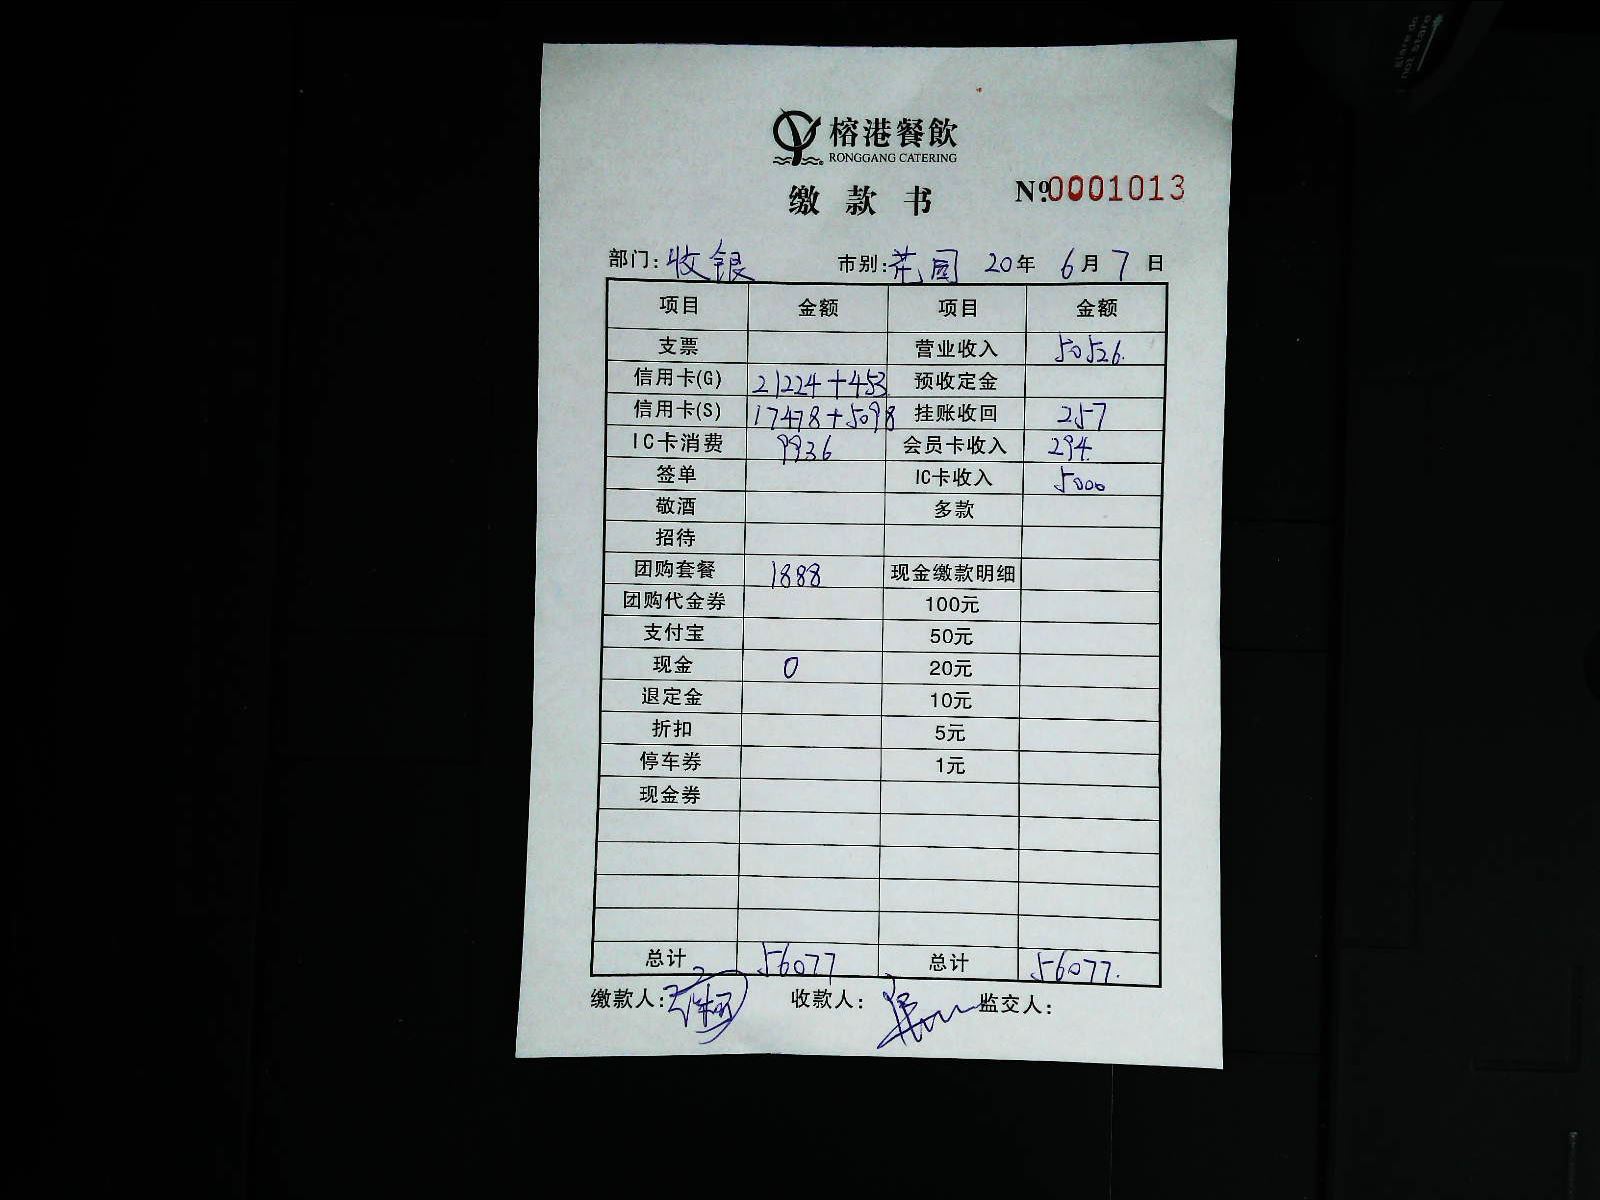 榕港餐飲
RONGGANG CATERING
缴款书 №0001013
部门：收银 市别：花园 20年 6月 7日
项目 金额 项目 金额
支票 营业收入 50526.
信用卡(G) 21224+453 预收定金
信用卡(S) 17478+5098 挂账收回 257
IC卡消费 9936 会员卡收入 294.
签单 IC卡收入 5000
敬酒 多款
招待
团购套餐 1888 现金缴款明细
团购代金券 100元
支付宝 50元
现金 0 20元
退定金 10元
折扣 5元
停车券 1元
现金券
总计 56077 总计 56077.
缴款人： 收款人： 监交人：